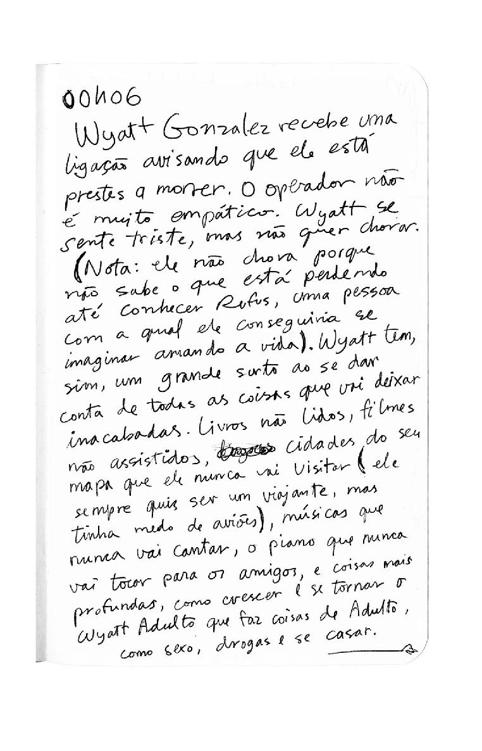 00h06
Wyatt Gonzalez recebe uma
ligação avisando que ele está
prestes a morrer. O operador não
é muito empático. Wyatt se
sente triste, mas não quer chorar.
(Nota: ele não chora porque
não sabe o que está perdendo
até conhecer Rufus, uma pessoa
com a qual ele conseguiria se
imaginar amando a vida). Wyatt tem,
sim, um grande surto ao se dar
conta de todas as coisas que vai deixar
inacabadas. Livros não lidos, filmes
não assistidos, cidades do seu
mapa que ele nunca vai visitar (ele
sempre quis ser um viajante, mas
tinha medo de aviões), músicas que
nunca vai cantar, o piano que nunca
vai tocar para os amigos, e coisas mais
profundas, como crescer e se tornar o
Wyatt Adulto que faz coisas de Adulto,
como sexo, drogas e se casar.